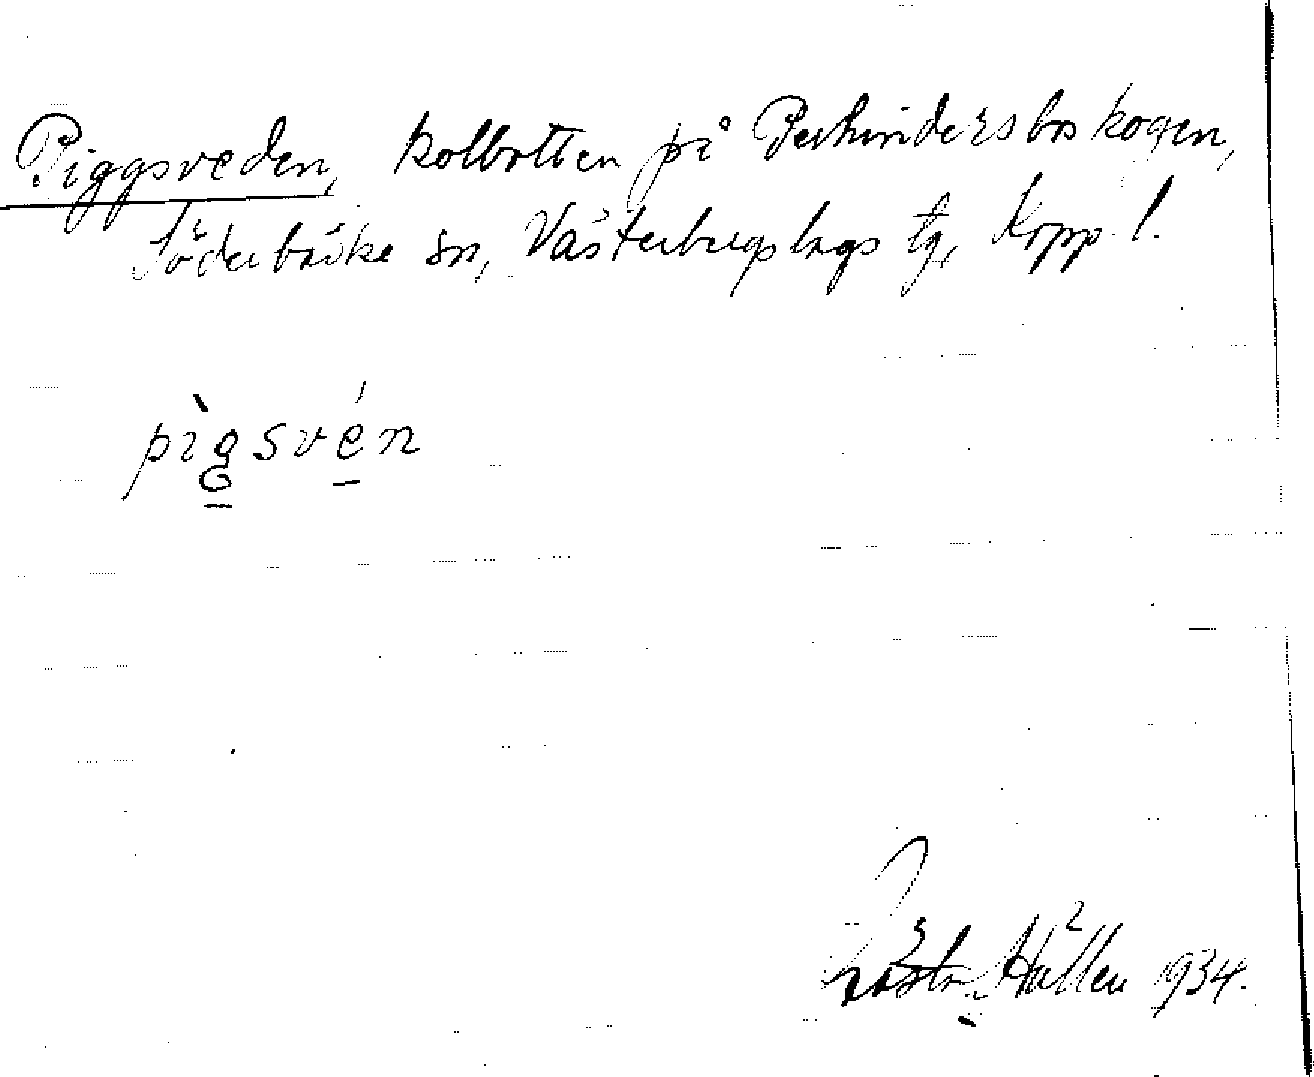 Piggsveden, kolbotten på Perhindersboskogen,
Söderbärke sn, Västerbergslags tg, Kopp. l.
pìgsvén
Hällen 1934.